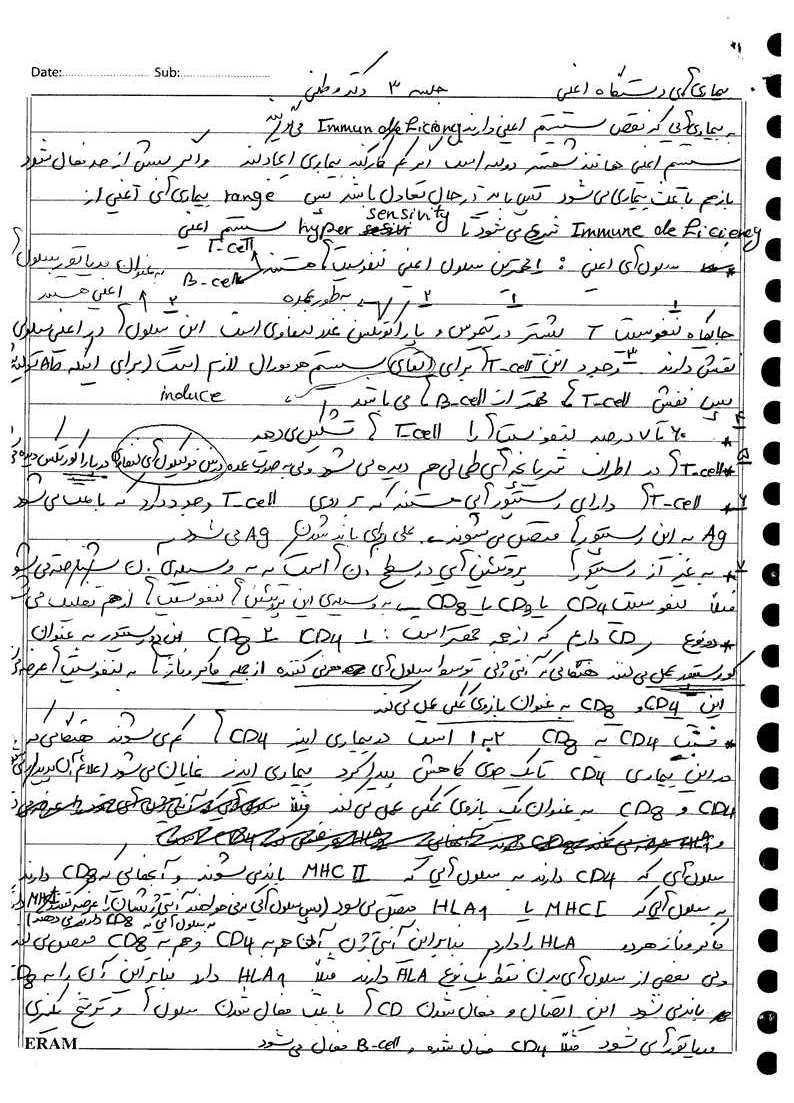 Date: Sub:
بیماری های دستگاه ایمنی جلسه ۳ دکتر وطنی
به بیماری هایی که نقص سیستم ایمنی دارند Immun deficiency می گویند
سیستم ایمنی همانند شمشیر دولبه است اگر کم کار کند بیماری ایجاد کند و اگر بیش از حد فعال شود
باز هم باعث بیماری می شود پس باید در حال تعادل باشد پس range بیماری های ایمنی از
Immune deficiency شروع می شود تا hyper sensivity سیستم ایمنی
* سلول های ایمنی : مهمترین سلول ایمنی لنفوسیت ها هستند T-cell B-cell به عنوان مدیاتور سلول های ایمنی هستند
به طور عمده
جایگاه لنفوسیت T بیشتر در تیموس و پاراکورتکس غدد لنفاوی است این سلول ها در ایمنی سلولی
نقش دارند ۳ وجود این T-cell ها برای القای سیستم هومورال لازم است (برای اینکه Ab تولید
پس نقش T-cell ها مهمتر از B-cell ها می باشد induce
۴ * ۶۰ تا ۷۰ درصد لنفوسیت ها را T-cell ها تشکیل می دهد
۵ * T-cell ها در اطراف شریانچه های طحالی هم دیده می شود ولی به صورت عمده در بین فولیکول های لنفاوی در پاراکورتکس دیده
۶ * T-cell ها دارای رسپتورهایی هستند که بر روی T-cell وجود دارد که باعث می شود
Ag به این رسپتورها متصل می شوند محلی برای باند شدن Ag می شود
۷ * به غیر از رسپتورها پروتئین هایی در سطح آن ها است که به وسیله ی آن شناخته می شود
مثلا لنفوسیت CD4 یا CD3 یا CD8 به وسیله ی این پروتئین ها لنفوسیت ها از هم تفکیک می
* دو نوع CD داریم که از همه مهمتر است : ۱ CD4 ۲ CD8 این دو رسپتور به عنوان
کورسپتور عمل می کنند هنگامی که آنتی ژنی توسط سلول های معرفی کننده از جمله ماکروفاژها به لنفوسیت ها عرضه
این CD4 و CD8 به عنوان بازوی کمکی عمل می کند
* نسبت CD4 به CD8 ۲ به ۱ است در بیماری ایدز CD4 ها کم می شوند هنگامی که
در این بیماری CD4 تا یک حدی کاهش پیدا کرد بیماری ایدز نمایان می شود (علائم آن پدیدار
CD4 و CD8 به عنوان یک بازوی کمکی عمل می کند
سلول هایی که CD4 دارند به سلول هایی که MHC II باند می شوند و آنهایی که CD8 دارند
به سلول هایی که MHC I یا HLA1 متصل می شود (پس سلول هایی که می خواهند آنتی ژنشان را عرضه کنند
به سلول هایی که CD8 دارند می دهند)
ماکروفاژ هر دو HLA را دارد بنابراین آنتی ژن آن هم به CD4 و هم به CD8 متصل می کند
ولی بعضی از سلول های بدن فقط یک نوع HLA دارند مثلا HLA1 دارد بنابراین آن را به CD8
باند می شود این اتصال و فعال شدن CD ها باعث فعال شدن سلول ها و ترشح یکسری
مدیاتورها می شود مثلا CD4 فعال شده و B-cell فعال می شود
ERAM